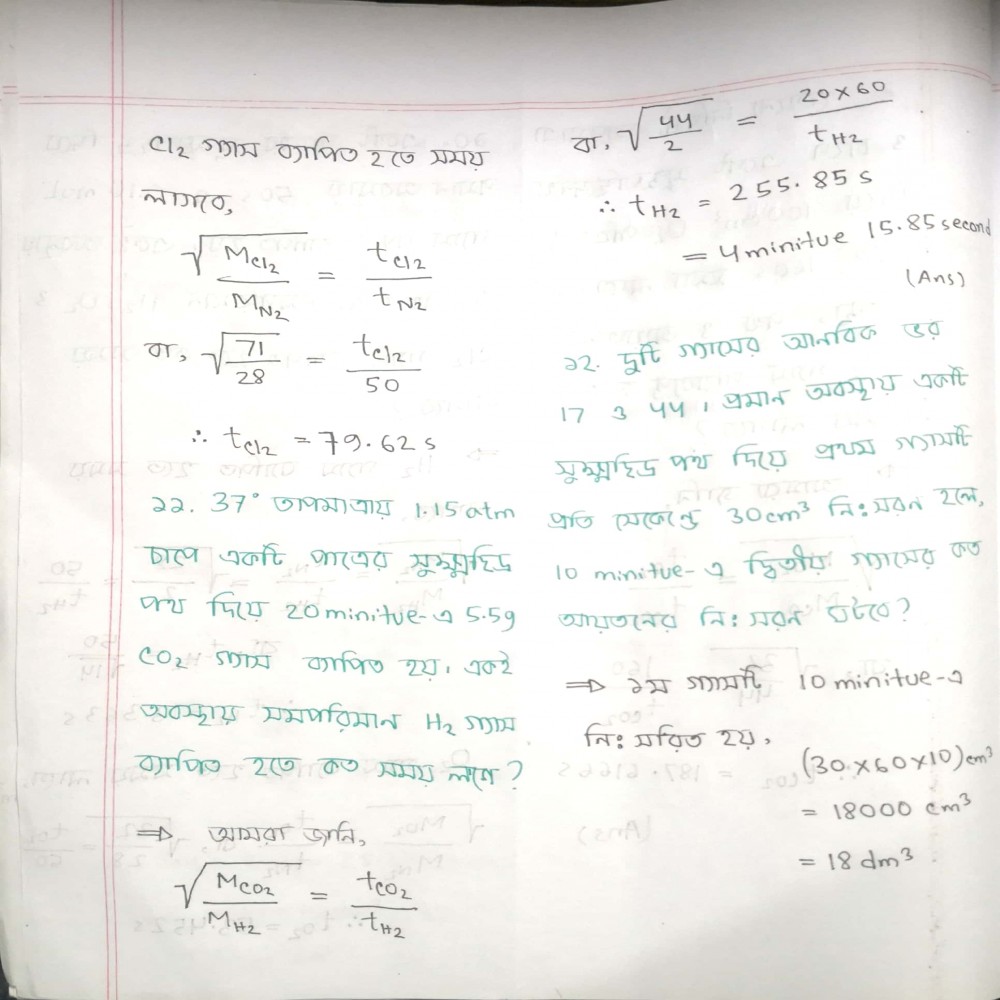 Cl2 গ্যাস ব্যাপিত হতে সময়
লাগবে,
√(M Cl2 / M N2) = t Cl2 / t N2
বা, √(71/28) = t Cl2 / 50
∴ t Cl2 = 79.62 s
১১. 37° তাপমাত্রায় 1.15 atm
চাপে একটি পাত্রের সুক্ষ্মছিদ্র
পথ দিয়ে 20 minitue-এ 5.5g
CO2 গ্যাস ব্যাপিত হয়। একই
অবস্থায় সমপরিমান H2 গ্যাস
ব্যাপিত হতে কত সময় লাগে?
⇒ আমরা জানি,
√(M CO2 / M H2) = t CO2 / t H2
বা, √(44/2) = 20×60 / t H2
∴ t H2 = 255.85 s
= 4 minitue 15.85 second
(Ans)
১২. দুটি গ্যাসের আনবিক ভর
17 ও 44। প্রমান অবস্থায় একটি
সুক্ষ্মছিদ্র পথ দিয়ে প্রথম গ্যাসটি
প্রতি সেকেন্ডে 30cm³ নিঃসরন হলে,
10 minitue-এ দ্বিতীয় গ্যাসের কত
আয়তনের নিঃসরন ঘটবে?
⇒ ১ম গ্যাসটি 10 minitue-এ
নিঃসরিত হয়,
(30×60×10) cm³
= 18000 cm³
= 18 dm³